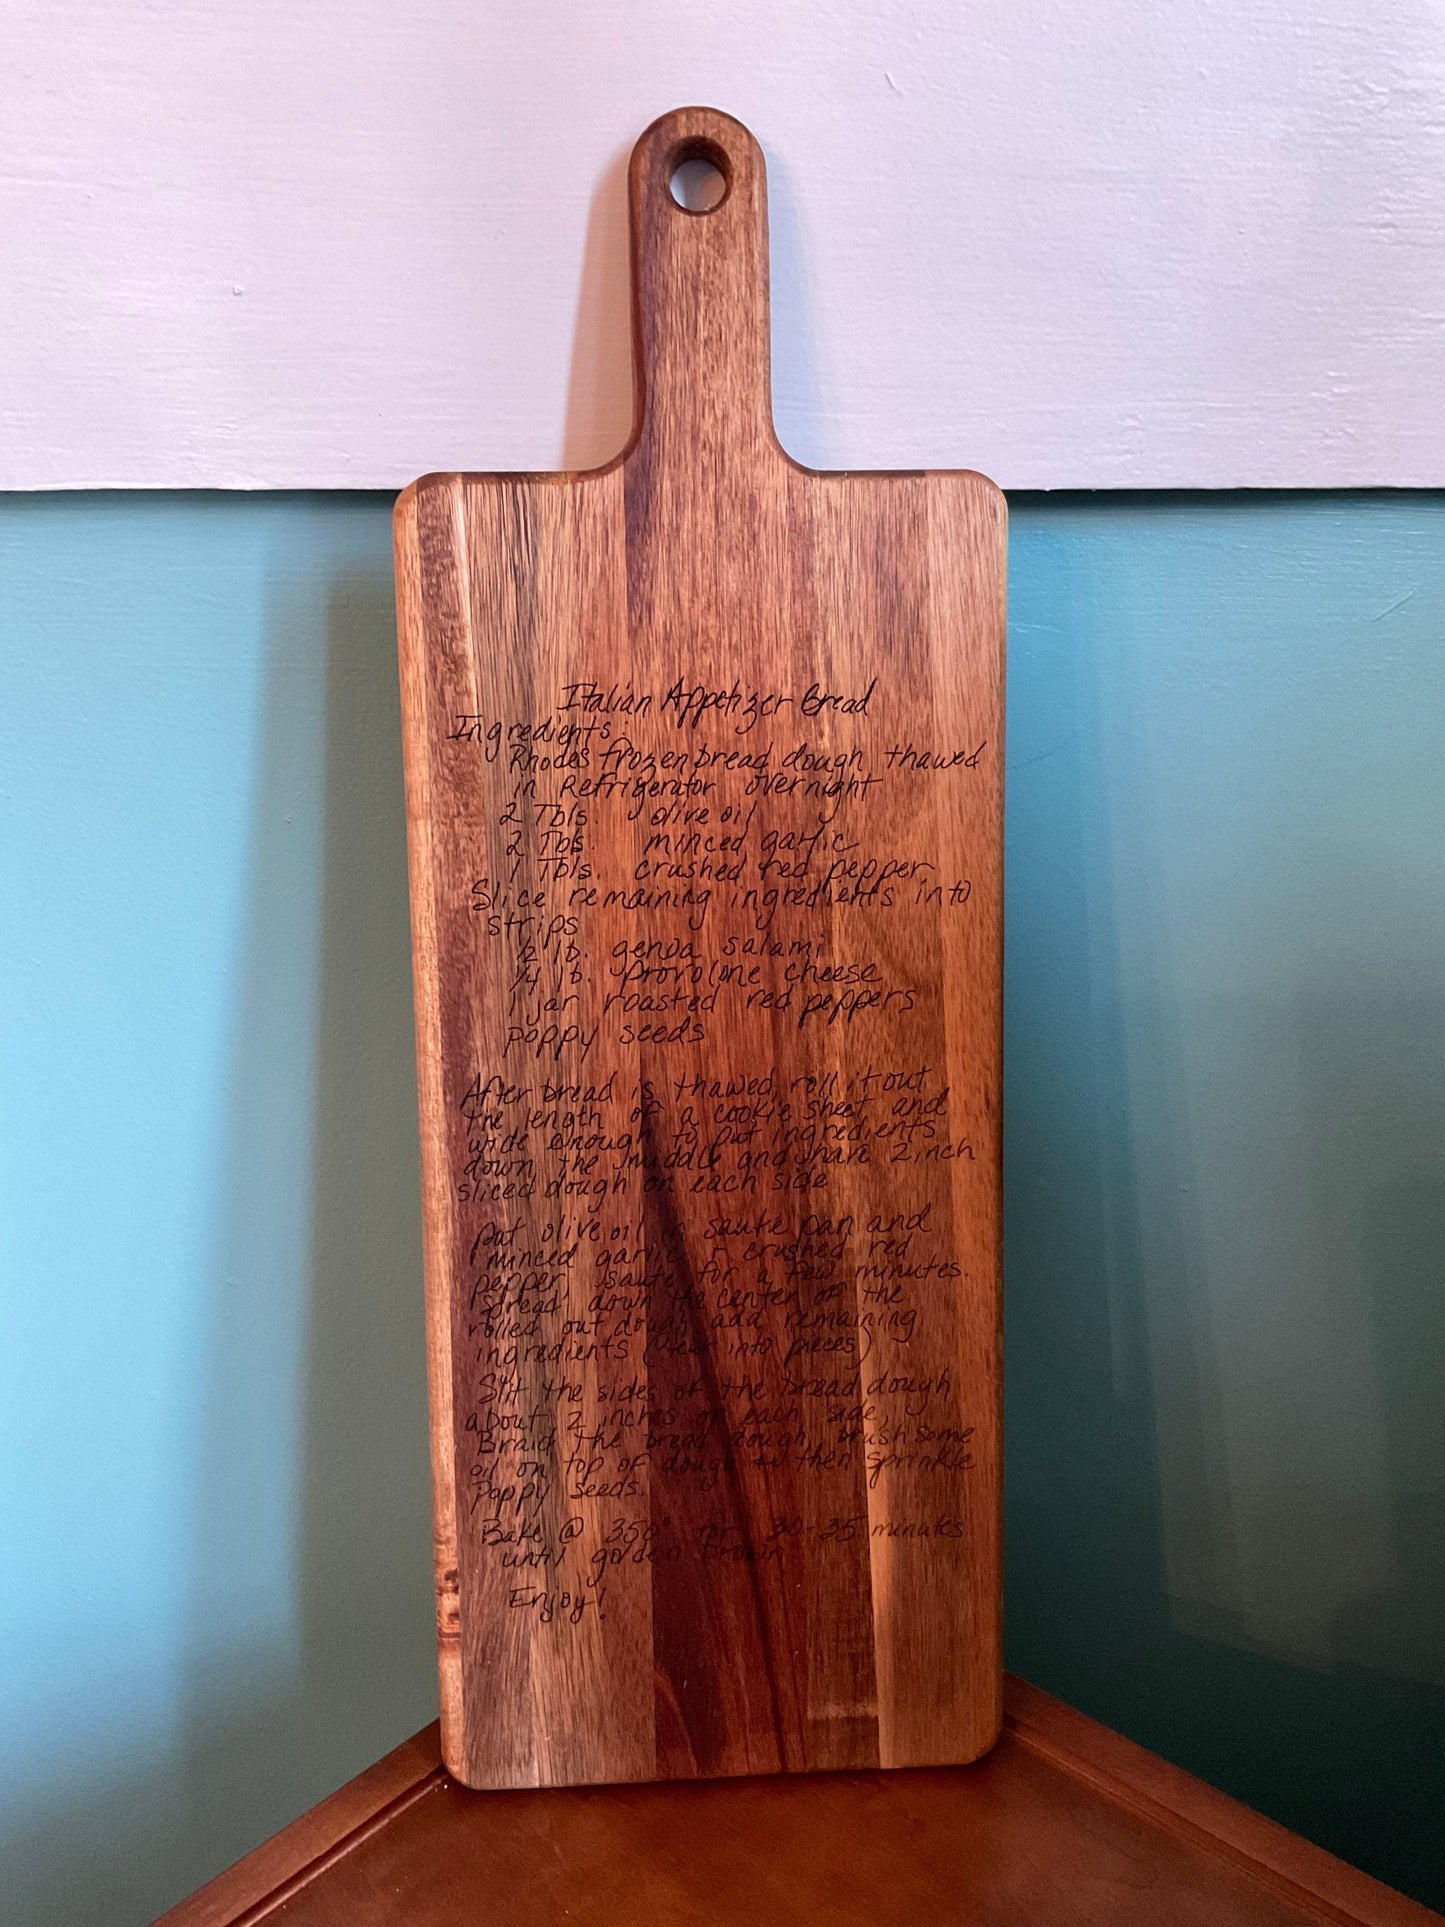 Italian Appetizer Bread
Ingredients:
Rhodes frozen bread dough thawed
in Refrigerator overnight
2 Tbls. olive oil
2 Tbls. minced garlic
1 Tbls. crushed red pepper
Slice remaining ingredients into
strips
1/2 lb. genoa salami
1/4 lb. provolone cheese
1 jar roasted red peppers
poppy seeds
After bread is thawed, roll it out
the length of a cookie sheet and
wide enough to put ingredients
down the middle and have 2 inch
sliced dough on each side
put olive oil in saute pan and
minced garlic + crushed red
pepper, saute for a few minutes.
Spread down the center of the
rolled out dough, add remaining
ingredients (tear into pieces)
Slit the sides of the bread dough
about 2 inches on each side,
Braid the bread dough, brush some
oil on top of dough then sprinkle
Poppy seeds.
Bake @ 350° for 30-35 minutes
until golden brown
Enjoy!